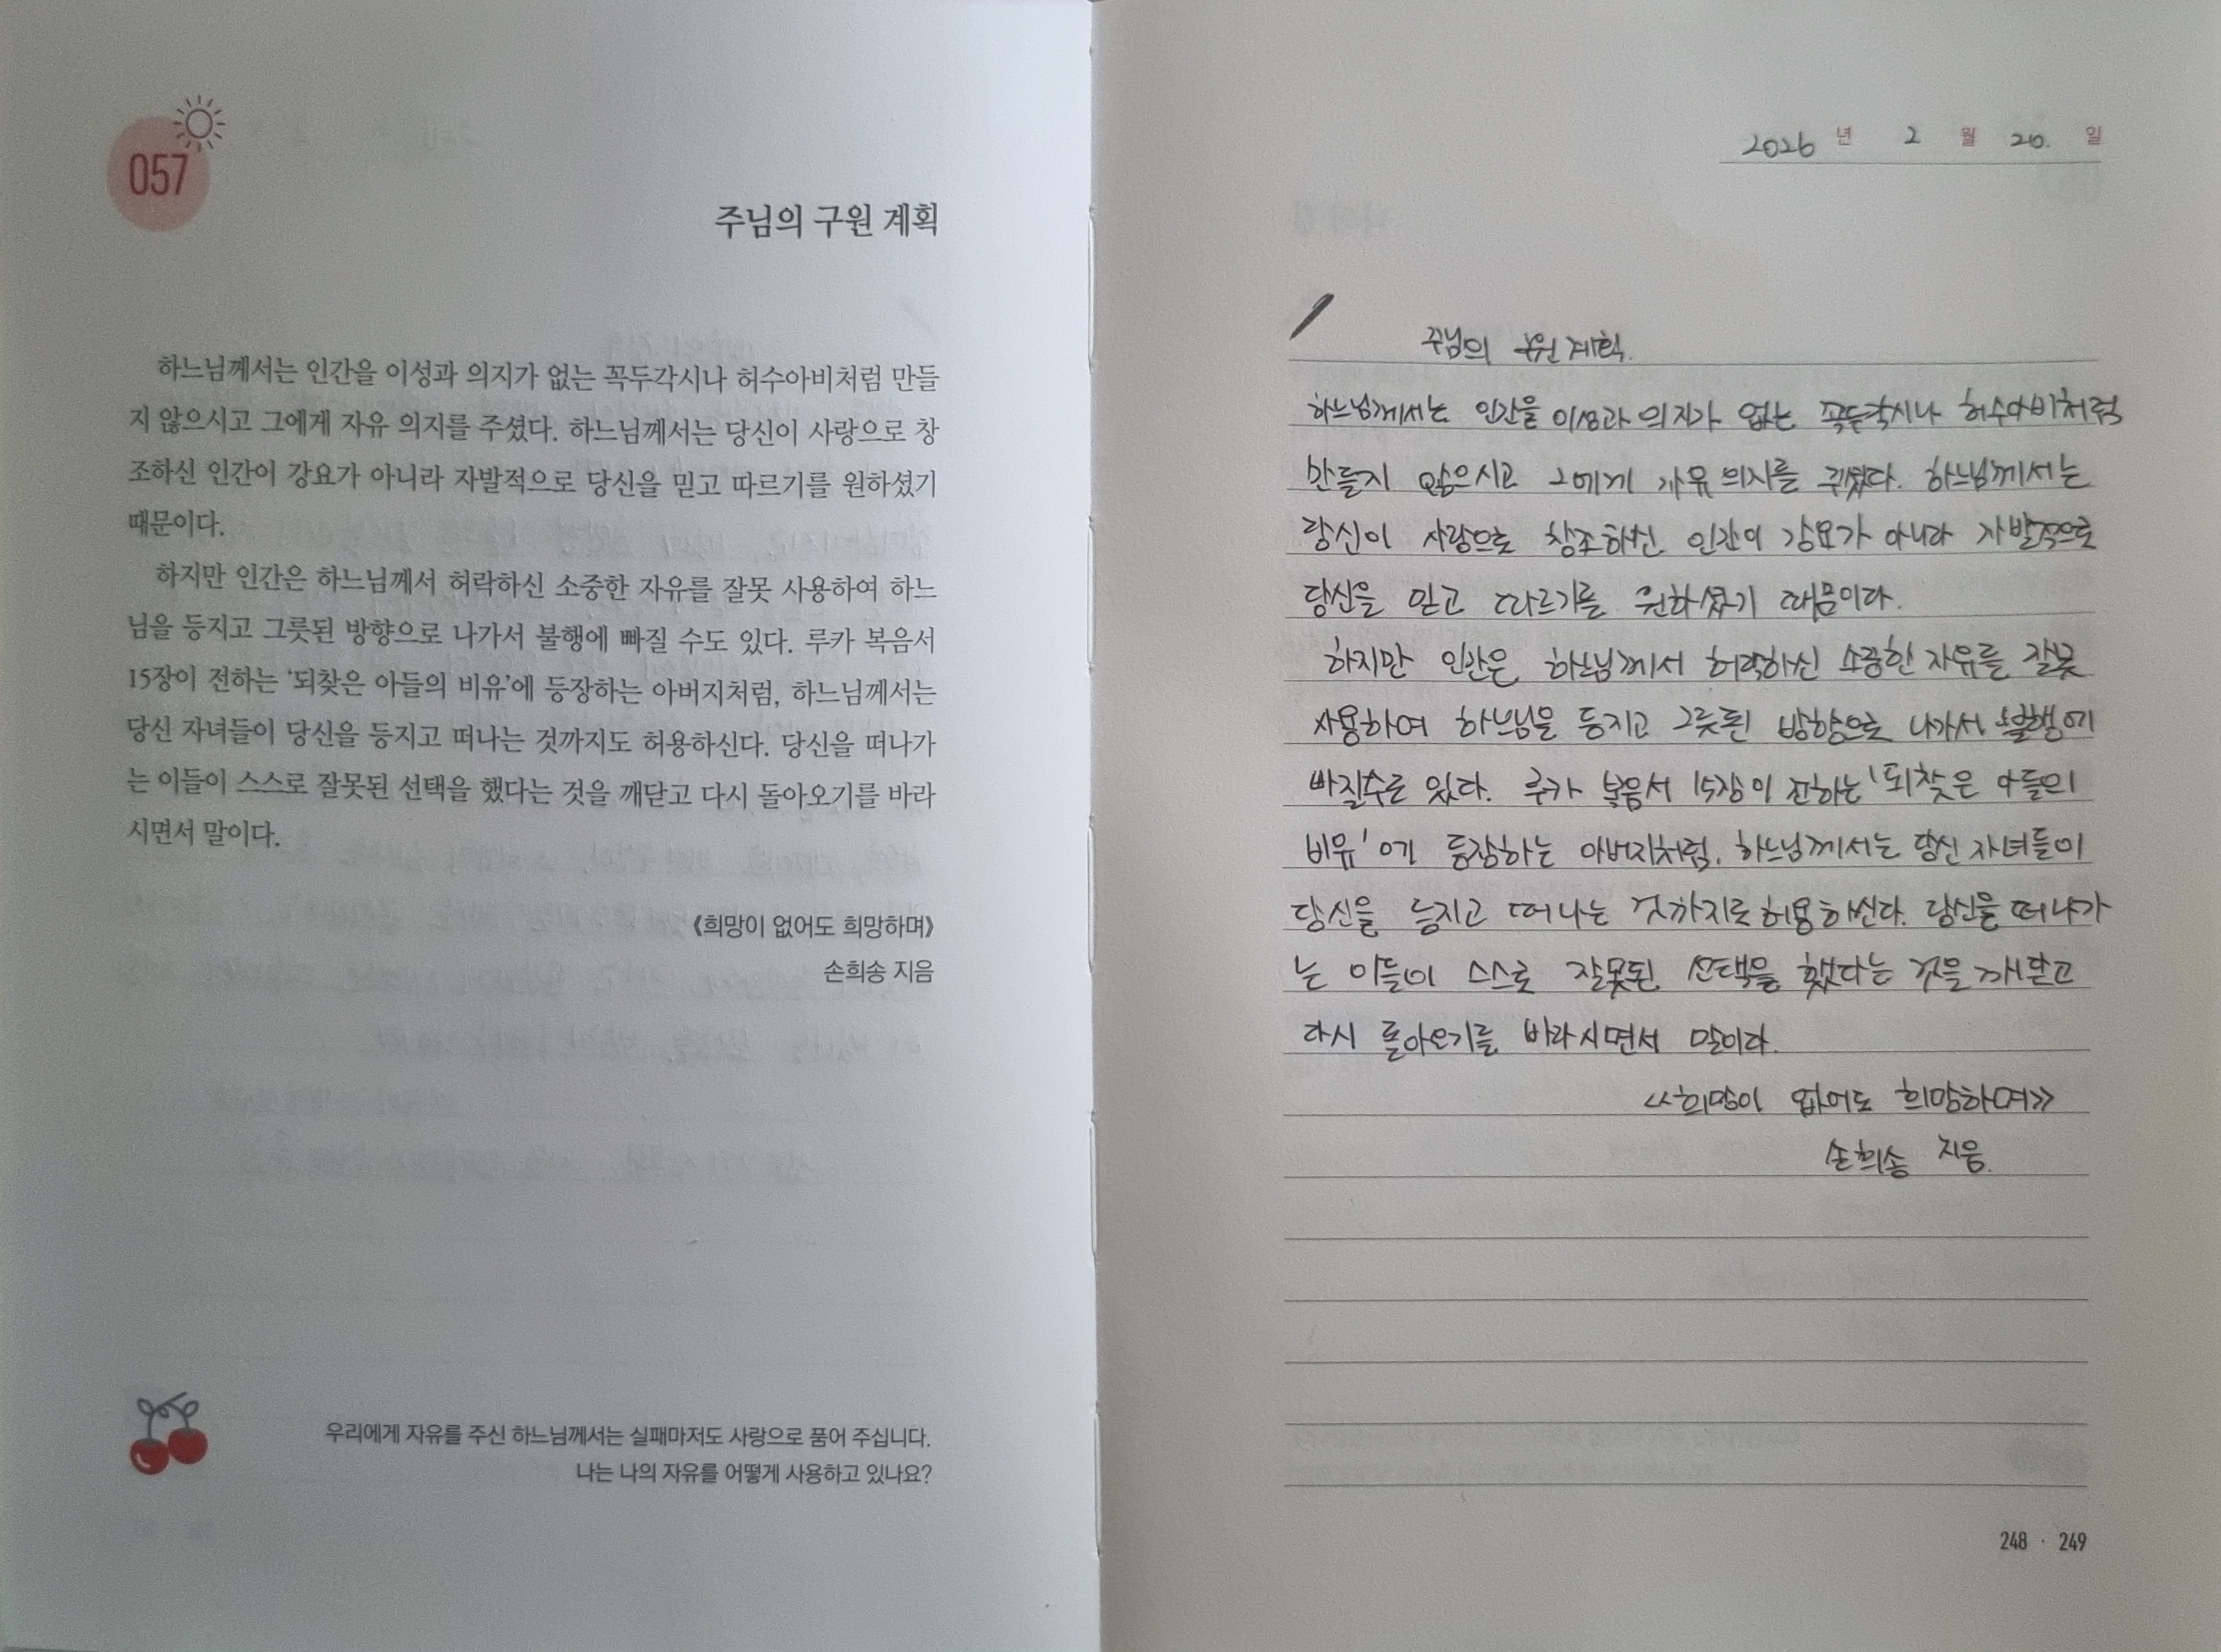 057
주님의 구원 계획
하느님께서는 인간을 이성과 의지가 없는 꼭두각시나 허수아비처럼 만들
지 않으시고 그에게 자유 의지를 주셨다. 하느님께서는 당신이 사랑으로 창
조하신 인간이 강요가 아니라 자발적으로 당신을 믿고 따르기를 원하셨기
때문이다.
하지만 인간은 하느님께서 허락하신 소중한 자유를 잘못 사용하여 하느
님을 등지고 그릇된 방향으로 나가서 불행에 빠질 수도 있다. 루카 복음서
15장이 전하는 ‘되찾은 아들의 비유’에 등장하는 아버지처럼, 하느님께서는
당신 자녀들이 당신을 등지고 떠나는 것까지도 허용하신다. 당신을 떠나가
는 이들이 스스로 잘못된 선택을 했다는 것을 깨닫고 다시 돌아오기를 바라
시면서 말이다.
《희망이 없어도 희망하며》
손희송 지음
우리에게 자유를 주신 하느님께서는 실패마저도 사랑으로 품어 주십니다.
나는 나의 자유를 어떻게 사용하고 있나요?
2026 년 2 월 20. 일
주님의 구원 계획.
하느님께서는 인간을 이성과 의지가 없는 꼭두각시나 허수아비처럼
만들지 않으시고 그에게 자유 의지를 주셨다. 하느님께서는
당신이 사랑으로 창조하신 인간이 강요가 아니라 자발적으로
당신을 믿고 따르기를 원하셨기 때문이다.
하지만 인간은 하느님께서 허락하신 소중한 자유를 잘못
사용하여 하느님을 등지고 그릇된 방향으로 나가서 불행에
빠질수도 있다. 루카 복음서 15장이 전하는 '되찾은 아들의
비유'에 등장하는 아버지처럼, 하느님께서는 당신 자녀들이
당신을 등지고 떠나는 것까지도 허용하신다. 당신을 떠나가
는 이들이 스스로 잘못된 선택을 했다는 것을 깨닫고
다시 돌아오기를 바라시면서 말이다.
<<희망이 없어도 희망하며>>
손희송 지음.
248 · 249